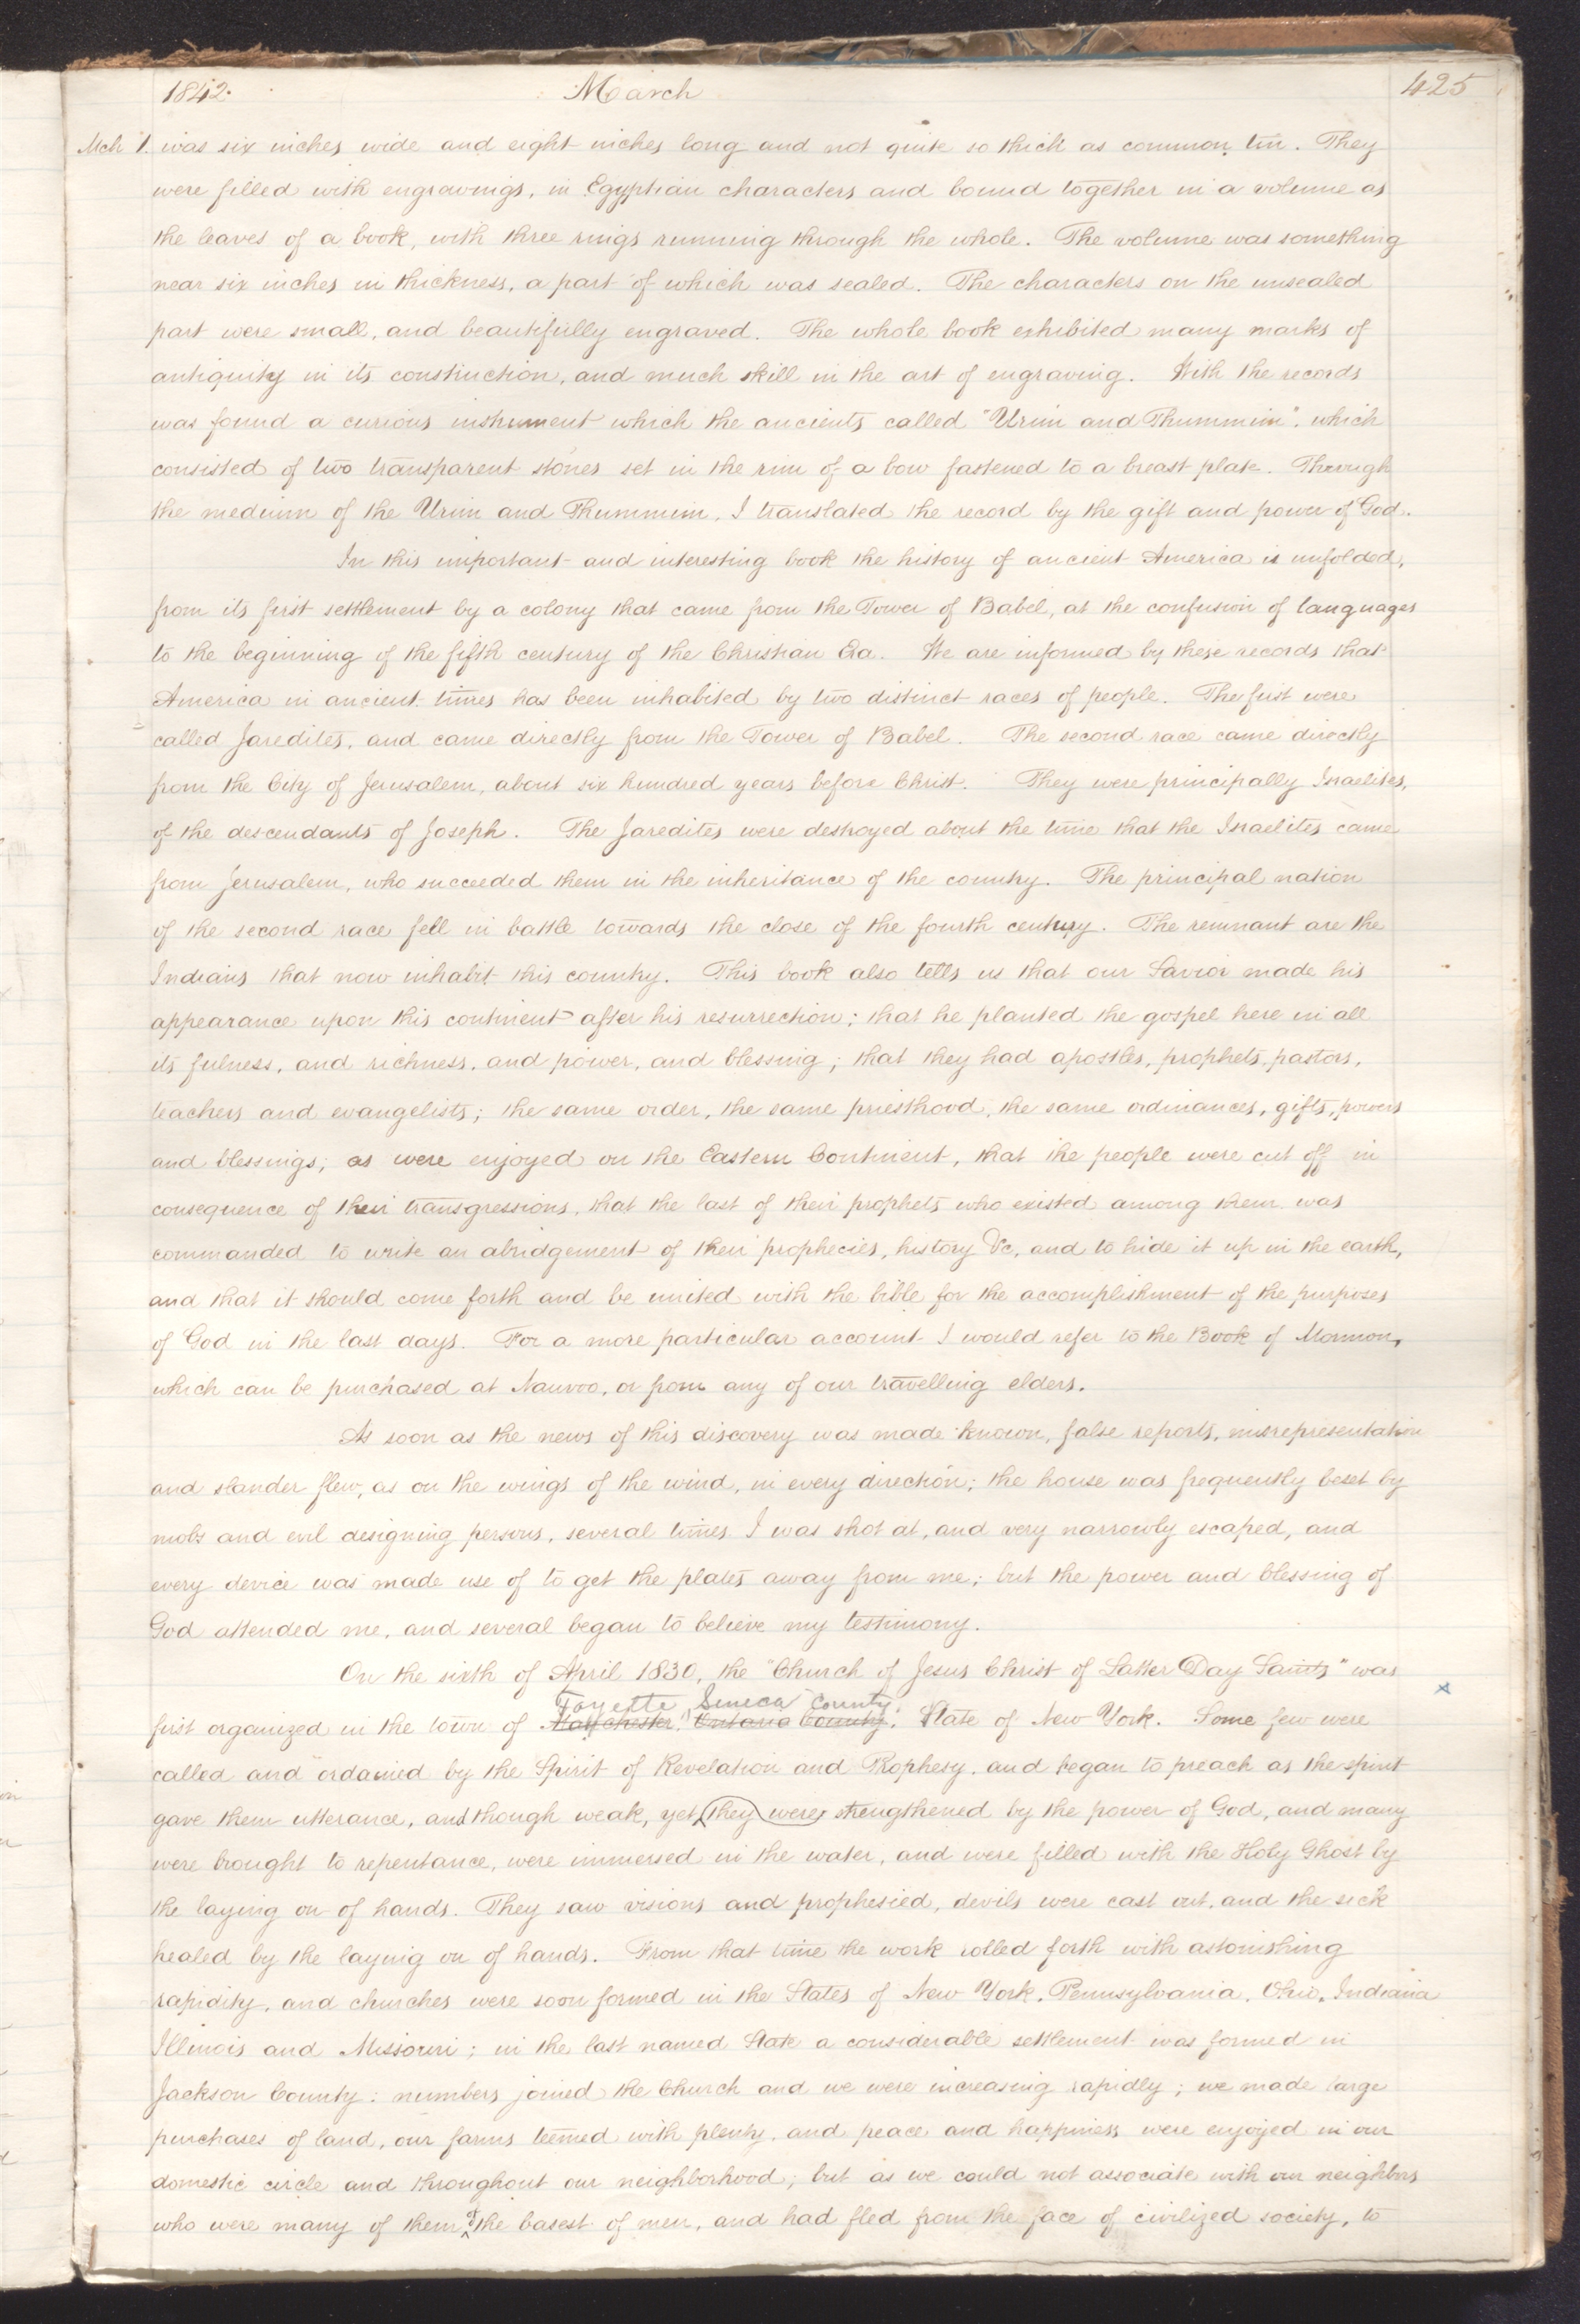 1842. March 425
Mch 1. was six inches wide and eight inches long and not quite so thick as common tin. They
were filled with engravings, in Egyptian characters and bound together in a volume as
the leaves of a book, with three rings running through the whole. The volume was something
near six inches in thickness, a part of which was sealed. The characters on the unsealed
part were small, and beautifully engraved. The whole book exhibited many marks of
antiquity in its construction, and much skill in the art of engraving. With the records
was found a curious instrument which the ancients called "Urim and Thummim", which
consisted of two transparent stones set in the rim of a bow fastened to a breast plate. Through
the medium of the Urim and Thummim, I translated the record by the gift and power of God.
In this important and interesting book the history of ancient America is unfolded,
from its first settlement by a colony that came from the Tower of Babel, at the confusion of languages
to the beginning of the fifth century of the Christian Era. We are informed by these records that
America in ancient times has been inhabited by two distinct races of people. The first were
called Jaredites, and came directly from the Tower of Babel. The second race came directly
from the City of Jerusalem, about six hundred years before Christ. They were principally Israelites,
of the descendants of Joseph. The Jaredites were destroyed about the time that the Israelites came
from Jerusalem, who succeeded them in the inheritance of the country. The principal nation
of the second race fell in battle towards the close of the fourth century. The remnant are the
Indians that now inhabit this country. This book also tells us that our Savior made his
appearance upon this continent after his resurrection; that he planted the gospel here in all
its fulness, and richness, and power, and blessing; that they had apostles, prophets, pastors,
teachers and evangelists; the same order, the same priesthood, the same ordinances, gifts, powers
and blessings; as were enjoyed on the Eastern Continent, that the people were cut off in
consequence of their transgressions, that the last of their prophets who existed among them was
commanded to write an abridgement of their prophecies, history &c, and to hide it up in the earth,
and that it should come forth and be united with the bible for the accomplishment of the purposes
of God in the last days. For a more particular account I would refer to the Book of Mormon,
which can be purchased at Nauvoo, or from any of our travelling elders.
As soon as the news of this discovery was made known, false reports, misrepresentation
and slander flew, as on the wings of the wind, in every direction; the house was frequently beset by
mobs and evil designing persons, several times I was shot at, and very narrowly escaped, and
every device was made use of to get the plates away from me; but the power and blessing of
God attended me, and several began to believe my testimony.
On the sixth of April 1830, the "Church of Jesus Christ of Latter Day Saints" was
Fayette Seneca County
first organized in the town of Manchester, Ontario County, State of New York. Some few were
called and ordained by the Spirit of Revelation and Prophesy, and began to preach as the spirit
gave them utterance, and though weak, yet they were strengthened by the power of God, and many
were brought to repentance, were immersed in the water, and were filled with the Holy Ghost by
the laying on of hands. They saw visions and prophesied, devils were cast out, and the sick
healed by the laying on of hands. From that time the work rolled forth with astonishing
rapidity, and churches were soon formed in the States of New York, Pennsylvania, Ohio, Indiana
Illinois and Missouri; in the last named State a considerable settlement was formed in
Jackson County: numbers joined the Church and we were increasing rapidly; we made large
purchases of land, our farms teemed with plenty, and peace and happiness were enjoyed in our
domestic circle and throughout our neighborhood; but as we could not associate with our neighbors
who were many of them of the basest of men, and had fled from the face of civilized society, to